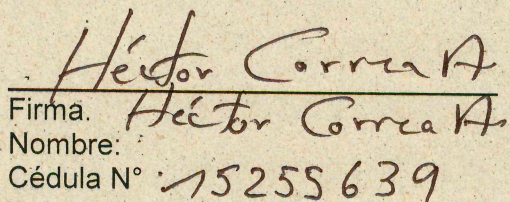 Héctor Correa A
Firma. Héctor Correa A.
Nombre:
Cédula N° 15255639